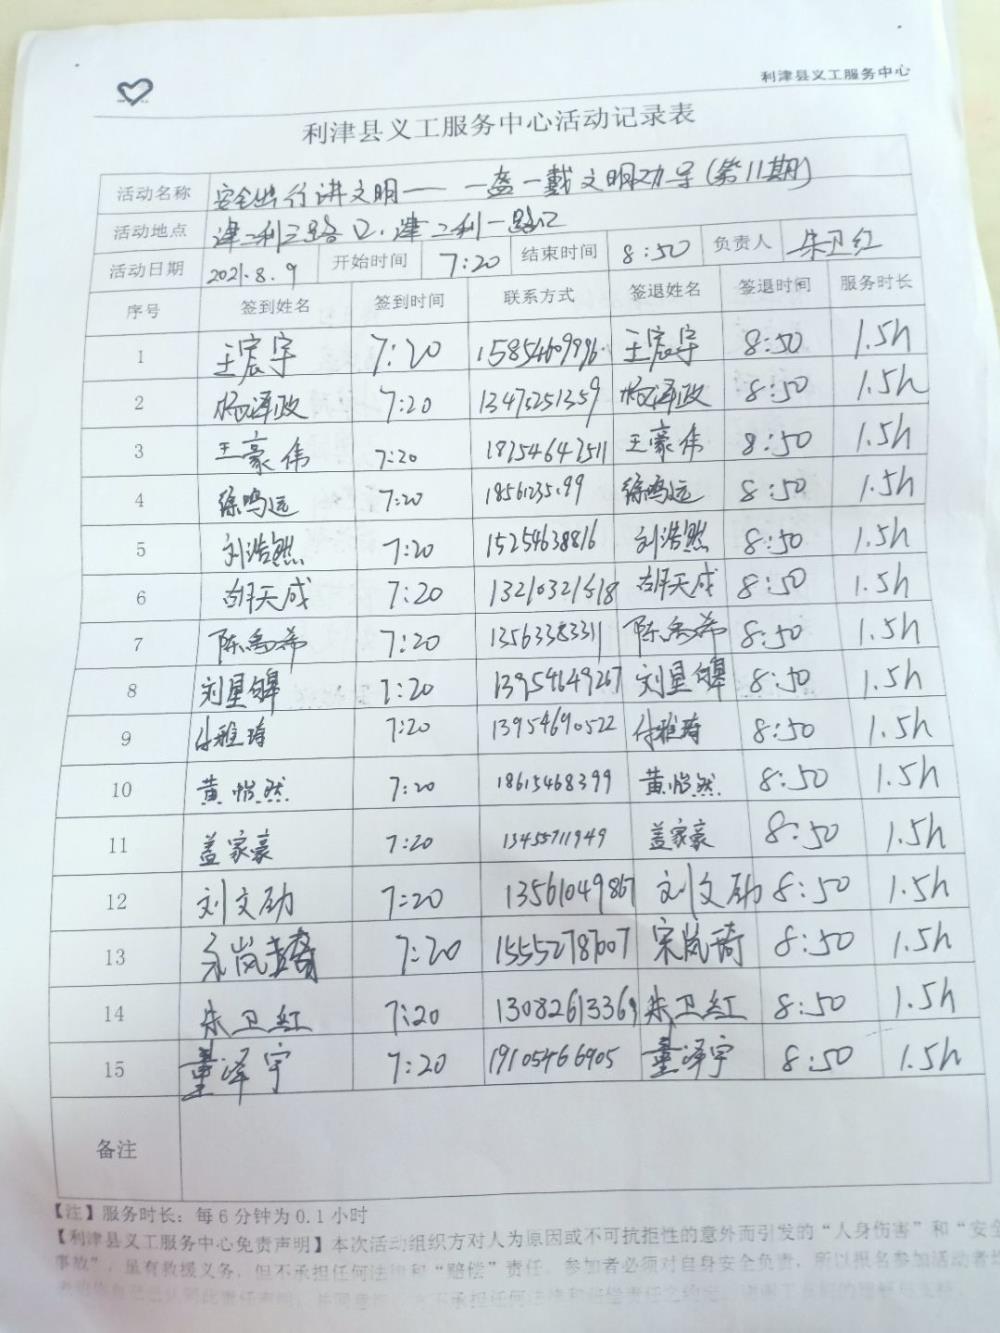 利津县义工服务中心
利津县义工服务中心活动记录表
活动名称 安全出行讲文明——一盔一戴文明劝导(第11期)
活动地点 津二利三路口、津二利一路口
活动日期 2021.8.9 开始时间 7:20 结束时间 8:50 负责人 朱卫红
序号 签到姓名 签到时间 联系方式 签退姓名 签退时间 服务时长
1 王宸宇 7:20 王宸宇 8:50 1.5h
2 杨泽政 7:20 13475251359 杨泽政 8:50 1.5h
3 王豪伟 7:20 18254642511 王豪伟 8:50 1.5h
4 徐鸣远 7:20 徐鸣远 8:50 1.5h
5 刘浩然 7:20 15254638816 刘浩然 8:50 1.5h
6 胡天成 7:20 胡天成 8:50 1.5h
7 陈禹希 7:20 13563383311 陈禹希 8:50 1.5h
8 刘星皞 7:20 13954649267 刘星皞 8:50 1.5h
9 付雅琦 7:20 13954690522 付雅琦 8:50 1.5h
10 黄怡然 7:20 18615468399 黄怡然 8:50 1.5h
11 盖家豪 7:20 13455711949 盖家豪 8:50 1.5h
12 刘文劢 7:20 13561049867 刘文劢 8:50 1.5h
13 宋岚琦 7:20 15552787007 宋岚琦 8:50 1.5h
14 朱卫红 7:20 13082613369 朱卫红 8:50 1.5h
15 董泽宇 7:20 19105466905 董泽宇 8:50 1.5h
备注
【注】服务时长：每6分钟为0.1小时
【利津县义工服务中心免责声明】本次活动组织方对人为原因或不可抗拒性的意外而引发的“人身伤害”和“安全
事故”，虽有救援义务，但不承担任何法律和“赔偿”责任，参加者必须对自身安全负责，所以报名参加活动者